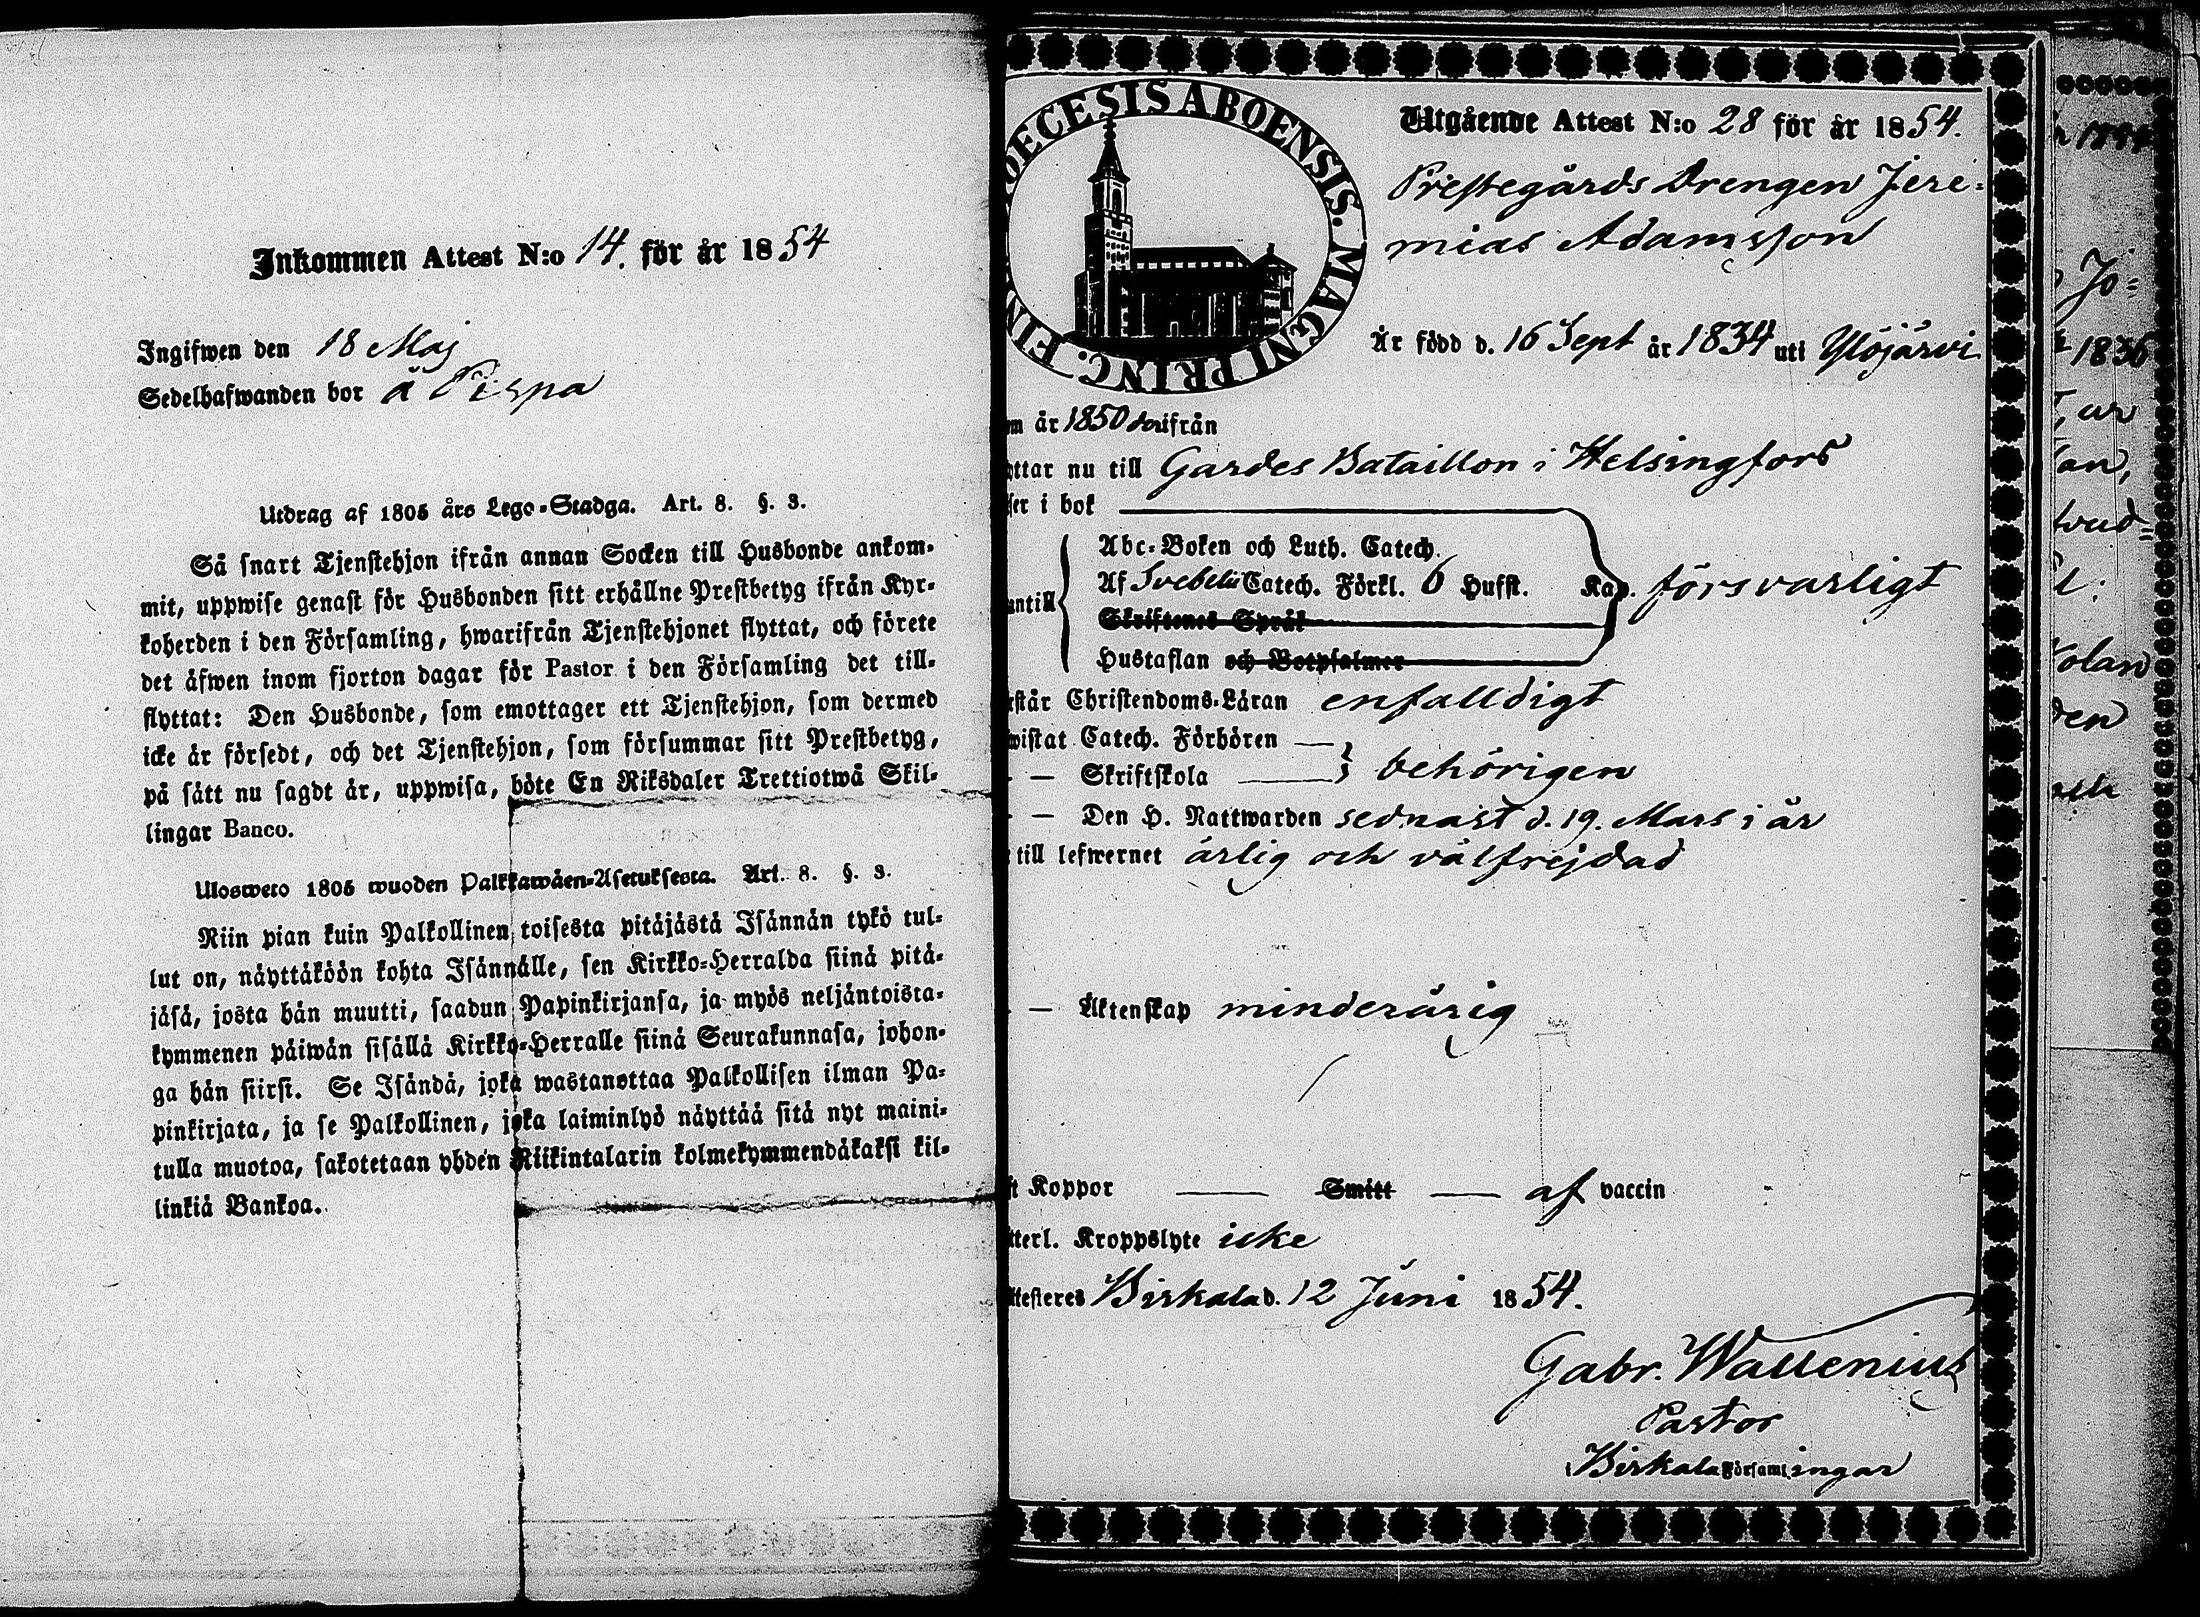 Inkommen Attest N:o 14. för år 1854
Ingifwen den 18 Maj
Sedelhafwanden bor å Pispa
Utdrag af 1805 års Lego-Stadga. Art. 8. §. 3.
Så snart Tjenstehjon ifrån annan Socken till Husbonde ankom-
mit, uppwise genast för Husbonden sitt erhållne Prestbetyg ifrån Kyr-
koherden i den Församling, hwarifrån Tjenstehjonet flyttat, och förete
det äfwen inom fjorton dagar för Pastor i den Församling det till-
flyttat: Den Husbonde, som emottager ett Tjenstehjon, som dermed
icke är försedt, och det Tjenstehjon, som försummar sitt Prestbetyg,
på sätt nu sagdt är, uppwisa, böte En Riksdaler Trettiotwå Skil-
lingar Banco.
Ulosweto 1805 wuoden Palkkawäen-Asetuksesta. Art. 8. §. 3.
Niin pian kuin Palkollinen toisesta pitäjästä Isännän tykö tul-
lut on, näyttäköön kohta Isännälle, sen Kirkko-Herralda siinä pitä-
jäsä, josta hän muutti, saadun Papinkirjansa, ja myös neljäntoista-
kymmenen päiwän sisällä Kirkko-Herralle siinä Seurakunnasa, johon-
ga hän siirsi. Se Isändä, joka wastanottaa Palkollisen ilman Pa-
pinkirjata, ja se Palkollinen, joka laiminlyö näyttää sitä nyt maini-
tulla muotoa, sakotetaan yhden Riikintalarin kolmekymmendäkaksi kil-
linkiä Bankoa.
DECESIS ABOENSIS. MAGNI PRINC. FIN
Utgående Attest N:o 28 för år 1854.
Prestegårds Drengen Jere-
mias Adamsson
Är född d. 16 Sept år 1834 uti Ylöjärvi
m år 1850 derifrån
ttar nu till Gardes Bataillon i Helsingfors
ser i bok
Abc-Boken och Luth. Catech.
Af Svebelii Catech. Förkl. 6 Hufst. Kap. försvarligt
antill
Skriftenes Språk
Hustaflan och Botpsalmer
rstår Christendoms-Läran enfalldigt
wistat Catech. Förhören —
— — Skriftskola — behörigen
— — Den H. Nattwarden sednast d. 19. Mars i år
till lefwernet ärlig och välfrejdad
— — Äktenskap minderårig
ft Koppor — Smitt — af vaccin
tterl. Kroppslyte icke
ttesteres Birkala d. 12 Juni 1854.
Gabr. Wallenius
Pastor
i Birkala Församlingar
Jö-
1836